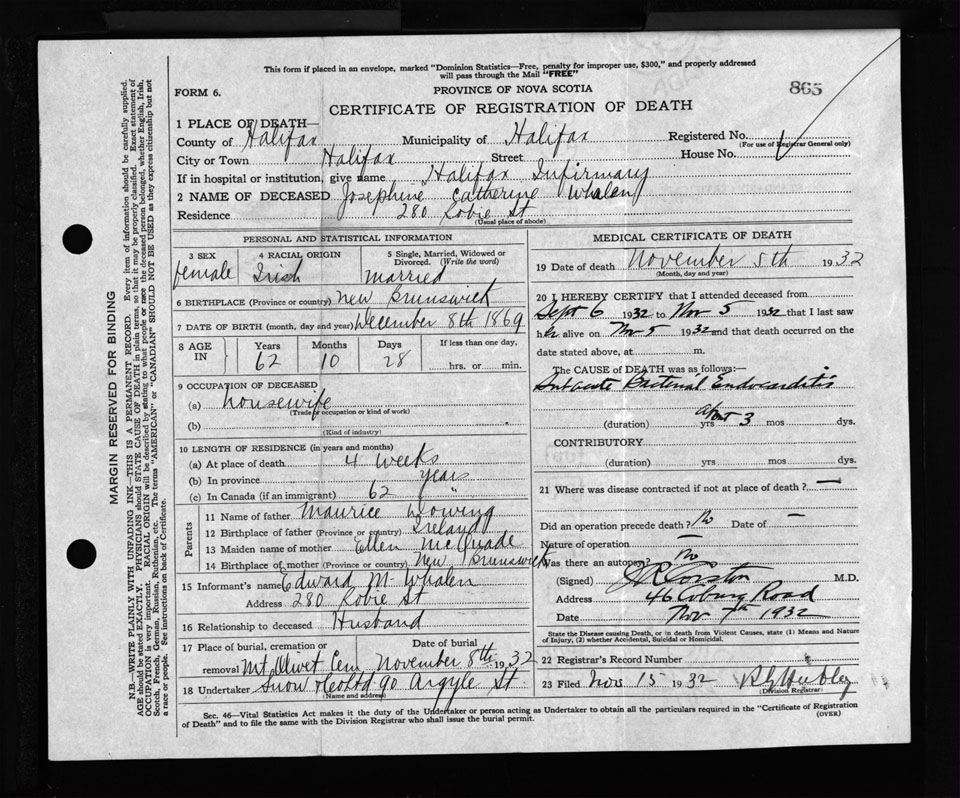 This form if placed in an envelope, marked "Dominion Statistics—Free, penalty for improper use, $300," and properly addressed
will pass through the Mail "FREE"
FORM 6.
PROVINCE OF NOVA SCOTIA
865
CERTIFICATE OF REGISTRATION OF DEATH
1 PLACE OF DEATH—
County of Halifax Municipality of Halifax Registered No.
(For use of Registrar General only)
City or Town Halifax Street House No.
If in hospital or institution, give name Halifax Infirmary
2 NAME OF DECEASED Josephine Catherine Whalen
Residence 280 Robie St
(Usual place of abode)
PERSONAL AND STATISTICAL INFORMATION
3 SEX 4 RACIAL ORIGIN 5 Single, Married, Widowed or
Divorced. (Write the word)
female Irish Married
6 BIRTHPLACE (Province or country) New Brunswick
7 DATE OF BIRTH (month, day and year) December 8th 1869
8 AGE IN Years Months Days If less than one day,
62 10 28 hrs. or min.
9 OCCUPATION OF DECEASED
(a) housewife
(Trade or occupation or kind of work)
(b)
(Kind of industry)
10 LENGTH OF RESIDENCE (in years and months)
(a) At place of death 4 weeks
(b) In province years
(c) In Canada (if an immigrant) 62 "
Parents
11 Name of father Maurice
12 Birthplace of father (Province or country) Ireland
13 Maiden name of mother Ellen McQuade
14 Birthplace of mother (Province or country) New Brunswick
15 Informant's name Edward M Whalen
Address 280 Robie St
16 Relationship to deceased Husband
17 Place of burial, cremation or Date of burial
removal Mt Olivet Cem November 8th 1932
18 Undertaker Snow & Co Ltd 90 Argyle St
(Name and address)
MEDICAL CERTIFICATE OF DEATH
19 Date of death November 5th 1932
(Month, day and year)
20 I HEREBY CERTIFY that I attended deceased from
Sept 6 1932 to Nov 5 1932 that I last saw
her alive on Nov 5 1932 and that death occurred on the
date stated above, at m.
The CAUSE of DEATH was as follows:—
Subacute Bacterial Endocarditis
(duration) yrs about 3 mos dys.
CONTRIBUTORY
(duration) yrs mos dys.
21 Where was disease contracted if not at place of death? —
Did an operation precede death? No Date of —
Nature of operation —
Was there an autopsy? No
(Signed) J R Corston M.D.
Address 46 Coburg Road
Date Nov 7th 1932
State the Disease causing Death, or in death from Violent Causes, state (1) Means and Nature
of Injury, (2) whether Accidental, Suicidal or Homicidal.
22 Registrar's Record Number
23 Filed Nov 15 1932
(Division Registrar)
Sec. 46—Vital Statistics Act makes it the duty of the Undertaker or person acting as Undertaker to obtain all the particulars required in the "Certificate of Registration
of Death" and to file the same with the Division Registrar who shall issue the burial permit.
(OVER)
MARGIN RESERVED FOR BINDING
N.B.—WRITE PLAINLY WITH UNFADING INK—THIS IS A PERMANENT RECORD. Every item of information should be carefully supplied.
AGE should be stated EXACTLY. PHYSICIANS should STATE CAUSE OF DEATH in plain terms, so that it may be properly classified. Exact statement of
OCCUPATION is very important. RACIAL ORIGIN will be described by stating to what people or race the deceased person belonged, whether English, Irish,
Scotch, French, German, Russian, Ruthenian, etc. The terms "AMERICAN" or "CANADIAN" SHOULD NOT BE USED as they express citizenship but not
a race or people. See instructions on back of Certificate.